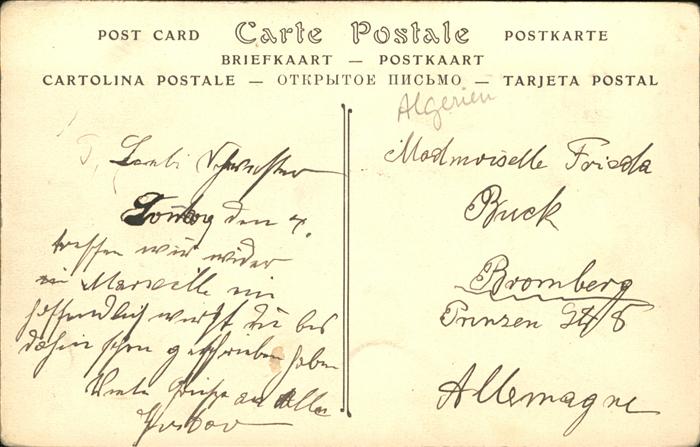 POST CARD Carte Postale POSTKARTE
BRIEFKAART — POSTKAART
CARTOLINA POSTALE — ОТКРЫТОЕ ПИСЬМО — TARJETA POSTAL
Algerien
Liebe Schwester
Sonntag den 4.
treffen wir wider
in Marseille ein
hoffendlich wirst du bis
dahin schon geschrieben haben
Viele Grüße an Alle
Gustav
Madmoiselle Frieda
Buck
Bromberg
Prinzen Str 8
Allemagne